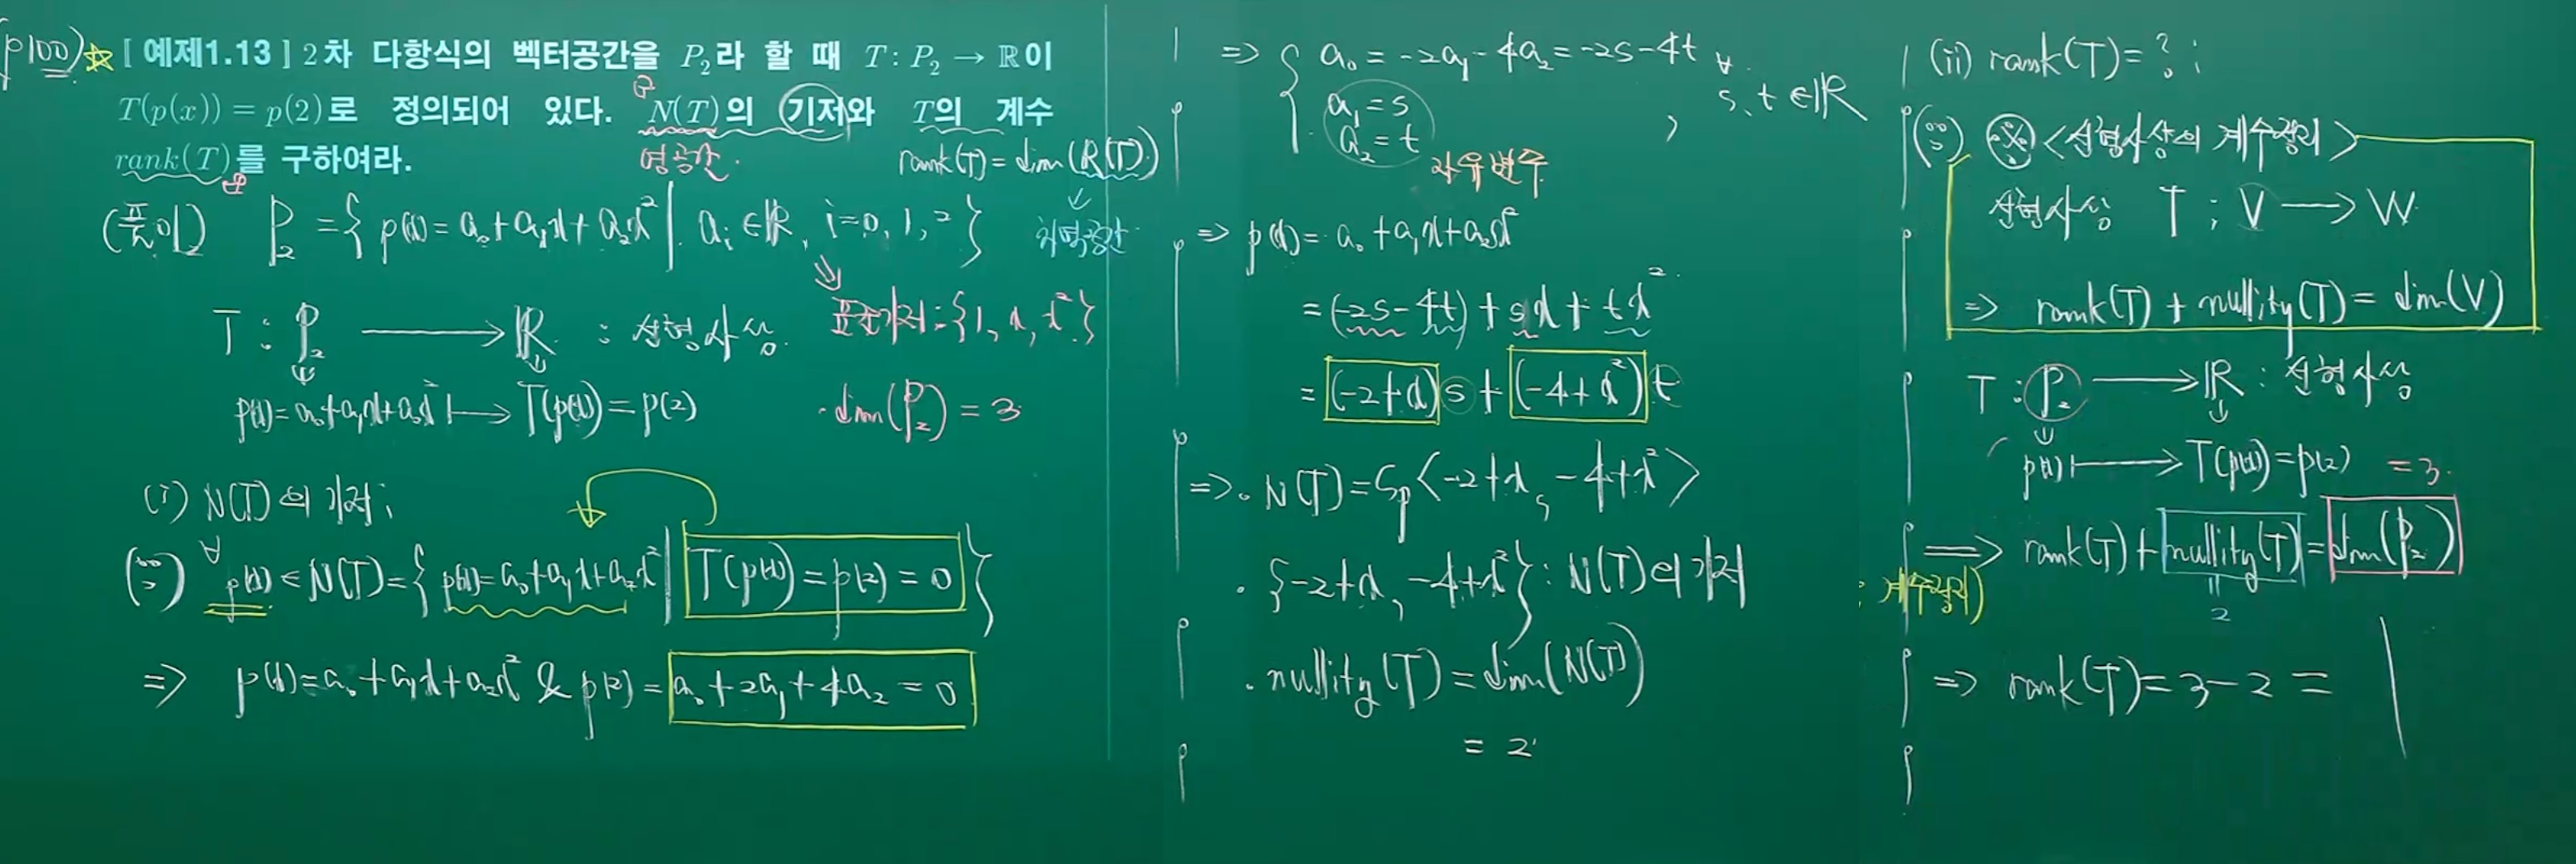 (p100) ☆ [ 예제1.13 ] 2차 다항식의 벡터공간을 P₂라 할 때 T : P₂ → ℝ이
T(p(x)) = p(2)로 정의되어 있다. N(T)의 기저와 T의 계수
rank(T)를 구하여라.
영공간.
rank(T) = dim(R(T))
치역공간.
(풀이) P₂ = { p(x) = a₀ + a₁x + a₂x² | aᵢ ∈ ℝ, i = 0, 1, 2 }
표준기저 : {1, x, x²}
T : P₂ → ℝ : 선형사상.
p(x) = a₀ + a₁x + a₂x² ↦ T(p(x)) = p(2)
· dim(P₂) = 3
(i) N(T)의 기저 ;
(∵) ∀ p(x) ∈ N(T) = { p(x) = a₀ + a₁x + a₂x² | T(p(x)) = p(2) = 0 }
⇒ p(x) = a₀ + a₁x + a₂x² & p(2) = a₀ + 2a₁ + 4a₂ = 0
⇒ { a₀ = -2a₁ - 4a₂ = -2s - 4t
a₁ = s
a₂ = t
, ∀ s, t ∈ ℝ
자유변수
⇒ p(x) = a₀ + a₁x + a₂x²
= (-2s - 4t) + sx + tx²
= (-2 + x)s + (-4 + x²)t
⇒ · N(T) = Sp < -2 + x, -4 + x² >
· { -2 + x, -4 + x² } : N(T)의 기저
· nullity(T) = dim(N(T))
= 2
(ii) rank(T) = ? ;
(∵) ※ <선형사상의 계수정리>
선형사상 T : V → W
⇒ rank(T) + nullity(T) = dim(V)
T : P₂ → ℝ : 선형사상
p(x) ↦ T(p(x)) = p(2)
= 3.
⇒ rank(T) + nullity(T) = dim(P₂)
∵ 계수정리)
= 2
⇒ rank(T) = 3 - 2 = 1